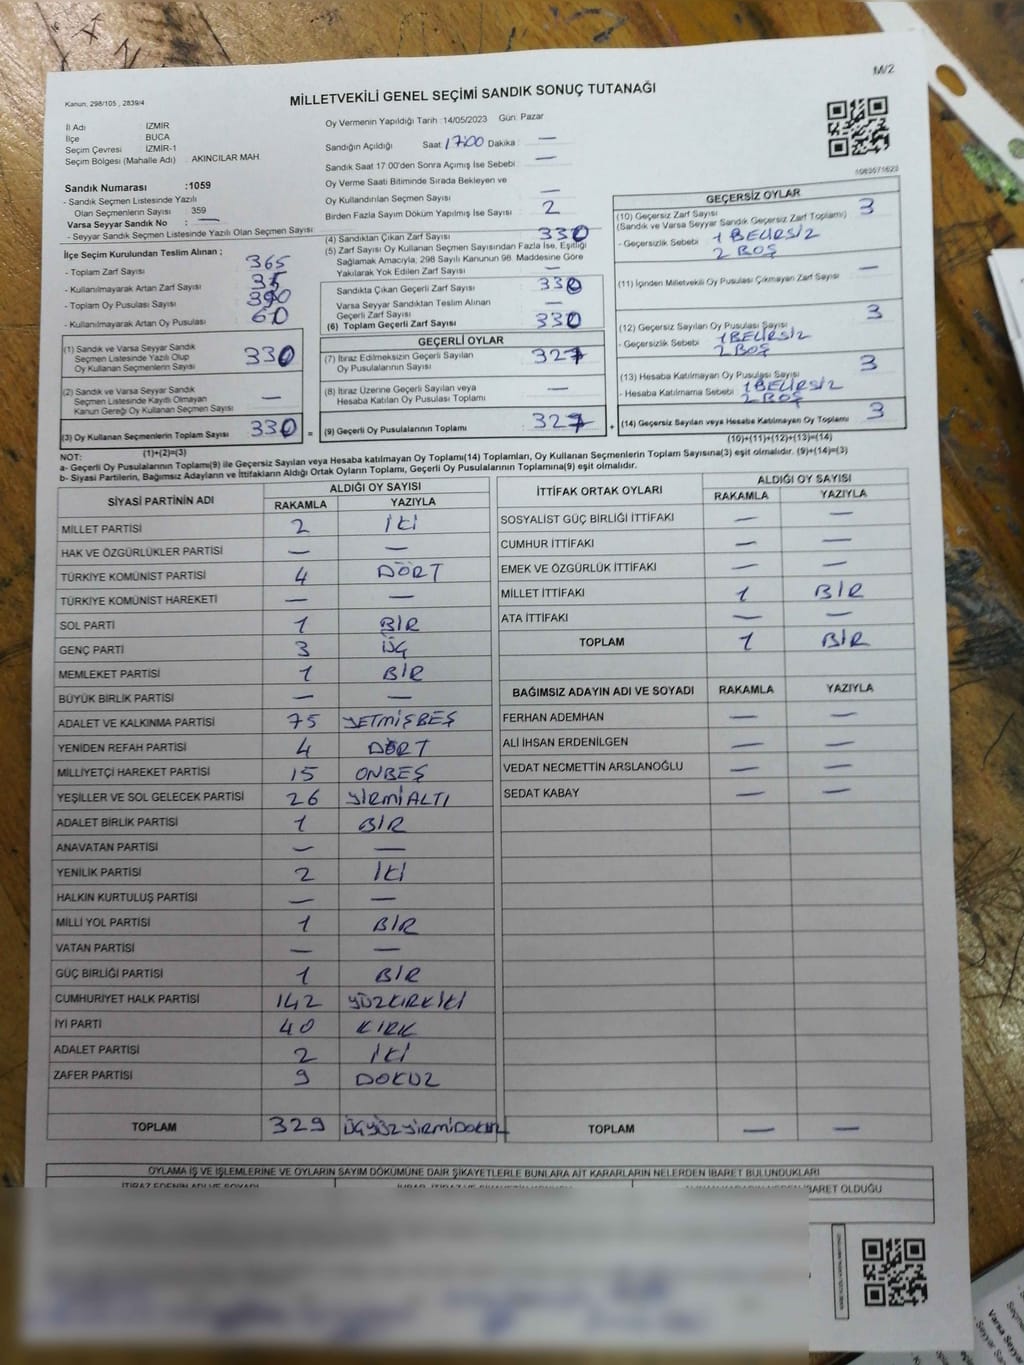 M/2
Kanun, 298/105 , 2839/4
MİLLETVEKİLİ GENEL SEÇİMİ SANDIK SONUÇ TUTANAĞI
İl Adı İZMİR
İlçe BUCA
Seçim Çevresi İZMİR-1
Seçim Bölgesi (Mahalle Adı) AKINCILAR MAH.
Sandık Numarası :1059
- Sandık Seçmen Listesinde Yazılı
Olan Seçmenlerin Sayısı 359
Varsa Seyyar Sandık No : —
- Seyyar Sandık Seçmen Listesinde Yazılı Olan Seçmen Sayısı
İlçe Seçim Kurulundan Teslim Alınan ;
- Toplam Zarf Sayısı 365
- Kullanılmayarak Artan Zarf Sayısı 35
- Toplam Oy Pusulası Sayısı 390
- Kullanılmayarak Artan Oy Pusulası 60
(1) Sandık ve Varsa Seyyar Sandık
Seçmen Listesinde Yazılı Olup
Oy Kullanan Seçmenlerin Sayısı 330
(2) Sandık ve Varsa Seyyar Sandık
Seçmen Listesinde Kayıtlı Olmayan
Kanun Gereği Oy Kullanan Seçmen Sayısı —
(3) Oy Kullanan Seçmenlerin Toplam Sayısı 330 =
(1)+(2)=(3)
Oy Vermenin Yapıldığı Tarih :14/05/2023 Gün: Pazar
Sandığın Açıldığı Saat 17:00 Dakika : —
Sandık Saat 17:00'den Sonra Açımış İse Sebebi —
Oy Verme Saati Bitiminde Sırada Bekleyen ve
Oy Kullandırılan Seçmen Sayısı —
Birden Fazla Sayım Döküm Yapılmış İse Sayısı 2
(4) Sandıktan Çıkan Zarf Sayısı 330
(5) Zarf Sayısı Oy Kullanan Seçmen Sayısından Fazla İse, Eşitliği
Sağlamak Amacıyla, 298 Sayılı Kanunun 98. Maddesine Göre
Yakılarak Yok Edilen Zarf Sayısı —
Sandıkta Çıkan Geçerli Zarf Sayısı 330
Varsa Seyyar Sandıktan Teslim Alınan
Geçerli Zarf Sayısı —
(6) Toplam Geçerli Zarf Sayısı 330
GEÇERLİ OYLAR
(7) İtiraz Edilmeksizin Geçerli Sayılan
Oy Pusulalarının Sayısı 327
(8) İtiraz Üzerine Geçerli Sayılan veya
Hesaba Katılan Oy Pusulası Toplamı —
(9) Geçerli Oy Pusulalarının Toplamı 327 +
GEÇERSİZ OYLAR
(10) Geçersiz Zarf Sayısı 3
(Sandık ve Varsa Seyyar Sandık Geçersiz Zarf Toplamı)
- Geçersizlik Sebebi 1 BELİRSİZ
2 BOŞ
(11) İçinden Milletvekili Oy Pusulası Çıkmayan Zarf Sayısı —
(12) Geçersiz Sayılan Oy Pusulası Sayısı 3
- Geçersizlik Sebebi 1 BELİRSİZ
2 BOŞ
(13) Hesaba Katılmayan Oy Pusulası Sayısı 3
- Hesaba Katılmama Sebebi 1 BELİRSİZ
2 BOŞ
(14) Geçersiz Sayılan veya Hesaba Katılmayan Oy Toplamı 3
(10)+(11)+(12)+(13)=(14)
NOT:
a- Geçerli Oy Pusulalarının Toplamı(9) ile Geçersiz Sayılan veya Hesaba katılmayan Oy Toplamı(14) Toplamları, Oy Kullanan Seçmenlerin Toplam Sayısına(3) eşit olmalıdır. (9)+(14)=(3)
b- Siyasi Partilerin, Bağımsız Adayların ve İttifakların Aldığı Ortak Oyların Toplamı, Geçerli Oy Pusulalarının Toplamına(9) eşit olmalıdır.
SİYASİ PARTİNİN ADI ALDIĞI OY SAYISI
RAKAMLA YAZIYLA
MİLLET PARTİSİ 2 İKİ
HAK VE ÖZGÜRLÜKLER PARTİSİ — —
TÜRKİYE KOMÜNİST PARTİSİ 4 DÖRT
TÜRKİYE KOMÜNİST HAREKETİ — —
SOL PARTİ 1 BİR
GENÇ PARTİ 3 ÜÇ
MEMLEKET PARTİSİ 1 BİR
BÜYÜK BİRLİK PARTİSİ — —
ADALET VE KALKINMA PARTİSİ 75 YETMİŞBEŞ
YENİDEN REFAH PARTİSİ 4 DÖRT
MİLLİYETÇİ HAREKET PARTİSİ 15 ONBEŞ
YEŞİLLER VE SOL GELECEK PARTİSİ 26 YİRMİALTI
ADALET BİRLİK PARTİSİ 1 BİR
ANAVATAN PARTİSİ — —
YENİLİK PARTİSİ 2 İKİ
HALKIN KURTULUŞ PARTİSİ — —
MİLLİ YOL PARTİSİ 1 BİR
VATAN PARTİSİ — —
GÜÇ BİRLİĞİ PARTİSİ 1 BİR
CUMHURİYET HALK PARTİSİ 142 YÜZKIRKİKİ
İYİ PARTİ 40 KIRK
ADALET PARTİSİ 2 İKİ
ZAFER PARTİSİ 9 DOKUZ
TOPLAM 329 ÜÇYÜZYİRMİDOKUZ
İTTİFAK ORTAK OYLARI ALDIĞI OY SAYISI
RAKAMLA YAZIYLA
SOSYALİST GÜÇ BİRLİĞİ İTTİFAKI — —
CUMHUR İTTİFAKI — —
EMEK VE ÖZGÜRLÜK İTTİFAKI — —
MİLLET İTTİFAKI 1 BİR
ATA İTTİFAKI — —
TOPLAM 1 BİR
BAĞIMSIZ ADAYIN ADI VE SOYADI RAKAMLA YAZIYLA
FERHAN ADEMHAN — —
ALİ İHSAN ERDENİLGEN — —
VEDAT NECMETTİN ARSLANOĞLU — —
SEDAT KABAY — —
TOPLAM — —
OYLAMA İŞ VE İŞLEMLERİNE VE OYLARIN SAYIM DÖKÜMÜNE DAİR ŞİKAYETLERLE BUNLARA AİT KARARLARIN NELERDEN İBARET BULUNDUKLARI
İTİRAZ EDENİN ADI VE SOYADI
İBARET OLDUĞU